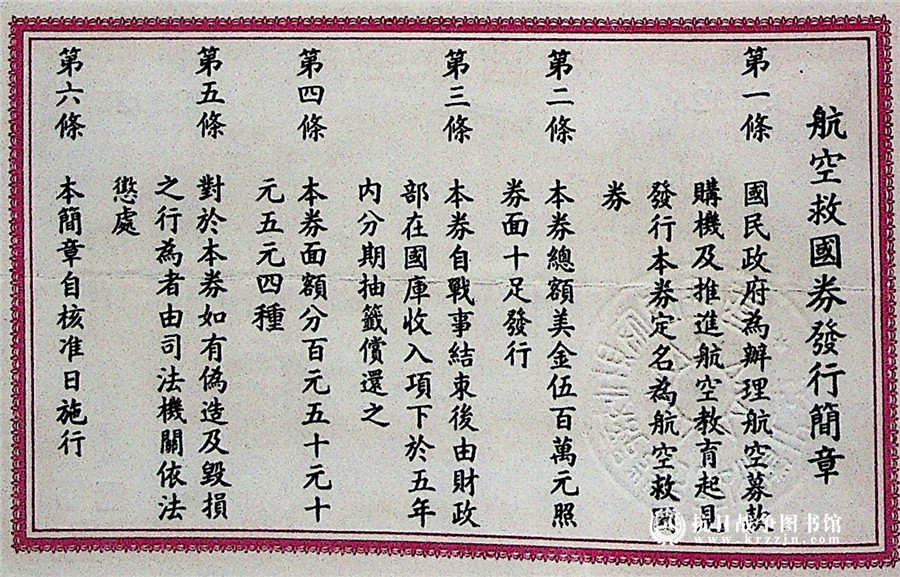 航空救國券發行簡章
第一條 國民政府為辦理航空募款
購機及推進航空教育起見
發行本券定名為航空救國
券
第二條 本券總額美金伍百萬元照
券面十足發行
第三條 本券自戰事結束後由財政
部在國庫收入項下於五年
內分期抽籤償還之
第四條 本券面額分百元五十元十
元五元四種
第五條 對於本券如有偽造及毀損
之行為者由司法機關依法
懲處
第六條 本簡章自核准日施行
抗日战争图书馆
www.krzzjn.com